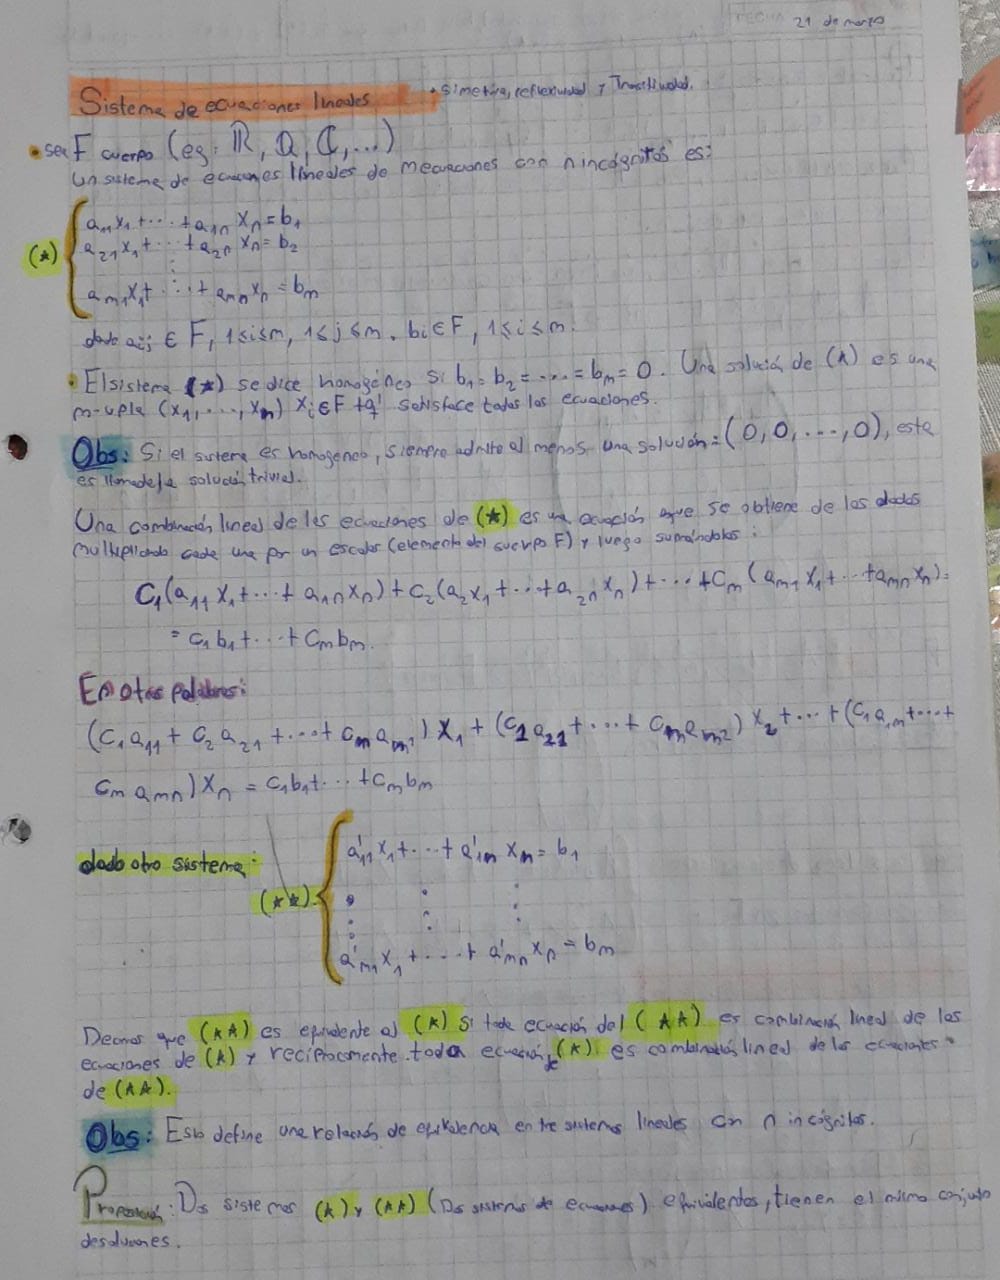 FECHA 21 de marzo
Sistema de ecuaciones lineales • Simetria, reflexividad y Transitividad.
• sea F cuerpo (eg: ℝ, ℚ, ℂ, ...)
Un sistema de ecuaciones lineales de m ecuaciones con n incógnitas es:
a₁₁x₁+...+a₁ₙxₙ=b₁
a₂₁x₁+...+a₂ₙxₙ=b₂
(★) ⋮
aₘ₁x₁+...+aₘₙxₙ=bₘ
dado aᵢⱼ ∈ F, 1≤i≤m, 1≤j≤m. bᵢ∈F, 1≤i≤m.
• El sistema (★) se dice homogéneo si b₁=b₂=...=bₘ=0. Una solución de (★) es una
n-upla (x₁,...,xₙ) xᵢ∈F tq' satisface todas las ecuaciones.
Obs: Si el sistema es homogeneo, siempre admite al menos una solución=(0,0,...,0), esta
es llamada la solución trivial.
Una combinación lineal de las ecuaciones de (★) es una ecuación que se obtiene de las dadas
multiplicando cada una por un escalar (elemento del cuerpo F) y luego sumándolas:
C₁(a₁₁x₁+...+a₁ₙxₙ)+C₂(a₂x₁+...+a₂ₙxₙ)+...+Cₘ(aₘ₁x₁+...+aₘₙxₙ)=
=c₁b₁+...+Cₘbₘ.
En otras palabras:
(C₁a₁₁+C₂a₂₁+...+Cₘaₘ₁)x₁+(C₁a₂₁+...+Cₘaₘ₂)x₂+...+(C₁a₁ₙ+...+
Cₘaₘₙ)xₙ=c₁b₁+...+Cₘbₘ
dado otro sistema: a'₁₁x₁+...+a'₁ₙxₙ=b₁
(★★). ⋮ ⋮ ⋮
a'ₘ₁x₁+...+a'ₘₙxₙ=bₘ
Decimos que (★★) es equivalente al (★) si toda ecuación del (★★) es combinación lineal de las
ecuaciones de (★) y reciprocamente toda ecuación de (★) es combinación lineal de las ecuaciones
de (★★).
Obs: Esto define una relación de equivalencia entre sistemas lineales con n incógnitas.
Proposición: Dos sistemas (★) y (★★) (Dos sistemas de ecuaciones) equivalentes, tienen el mismo conjunto
de soluciones.